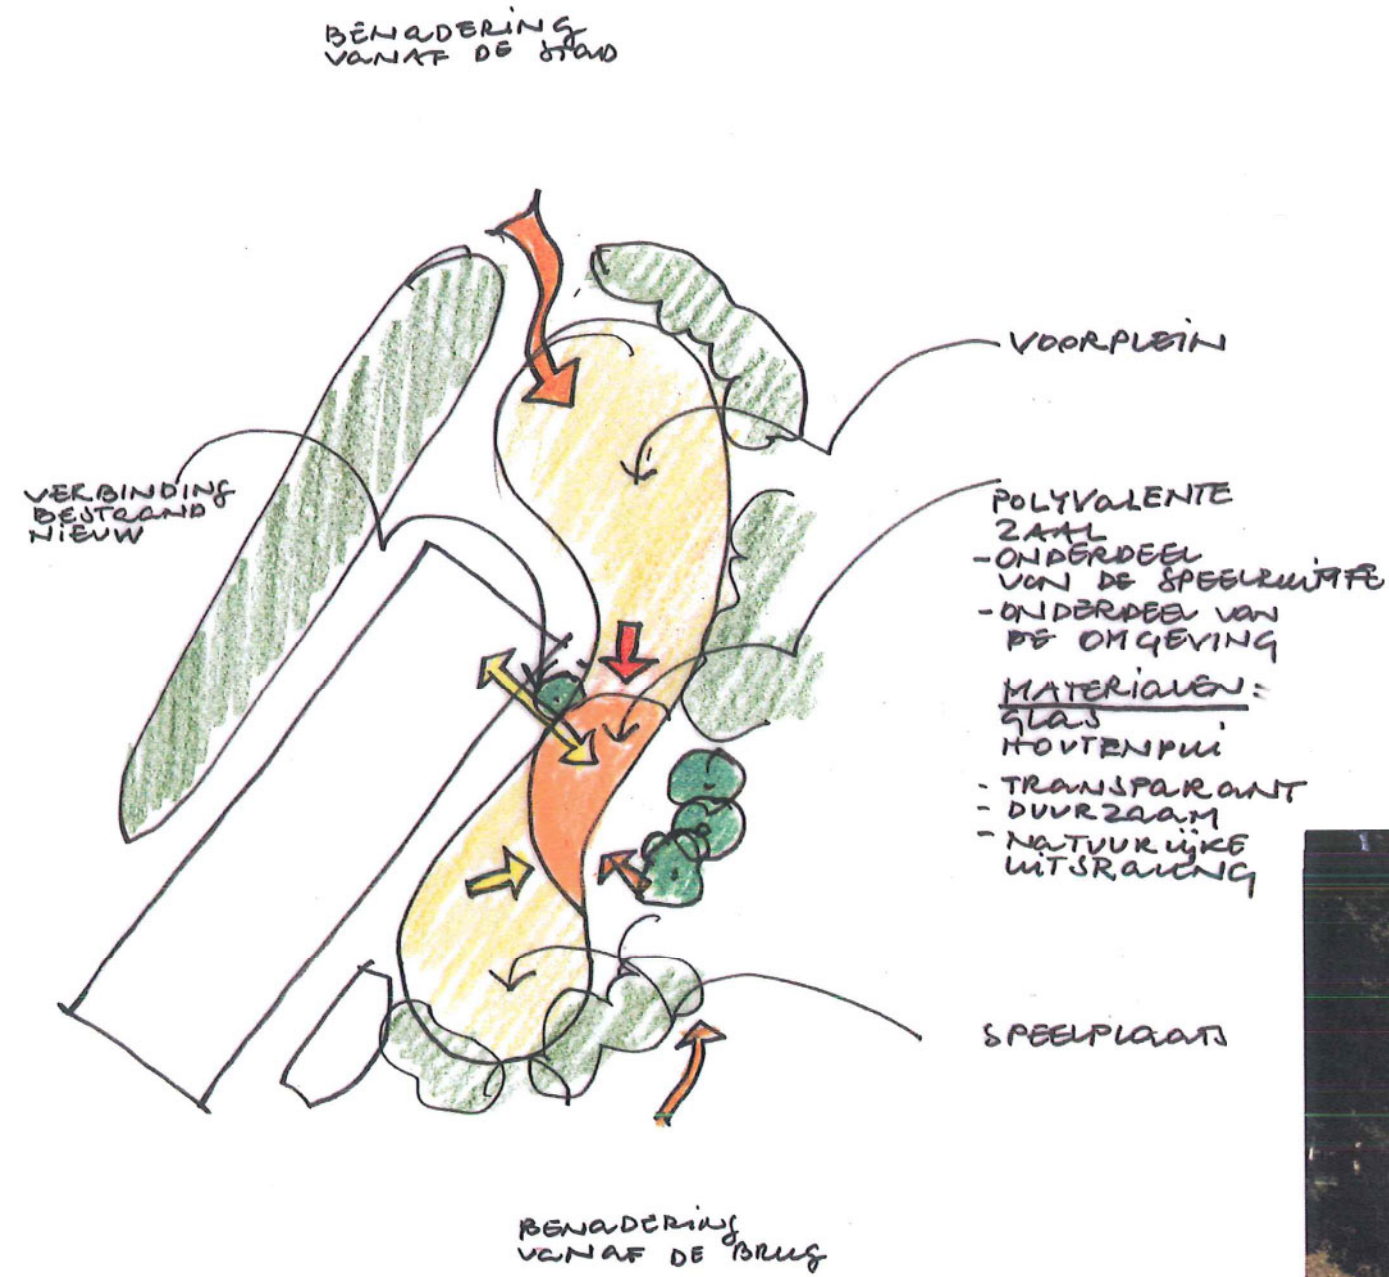 BENADERING
VANAF DE STAD
VOORPLEIN
VERBINDING
BESTAAND
NIEUW
POLYVALENTE
ZAAL
- ONDERDEEL
VAN DE SPEELRUIMTE
- ONDERDEEL VAN
DE OMGEVING
MATERIALEN:
GLAS
HOUTENPUI
- TRANSPARANT
- DUURZAAM
- NATUURLIJKE
UITSRALING
SPEELPLAATS
BENADERING
VANAF DE BRUG